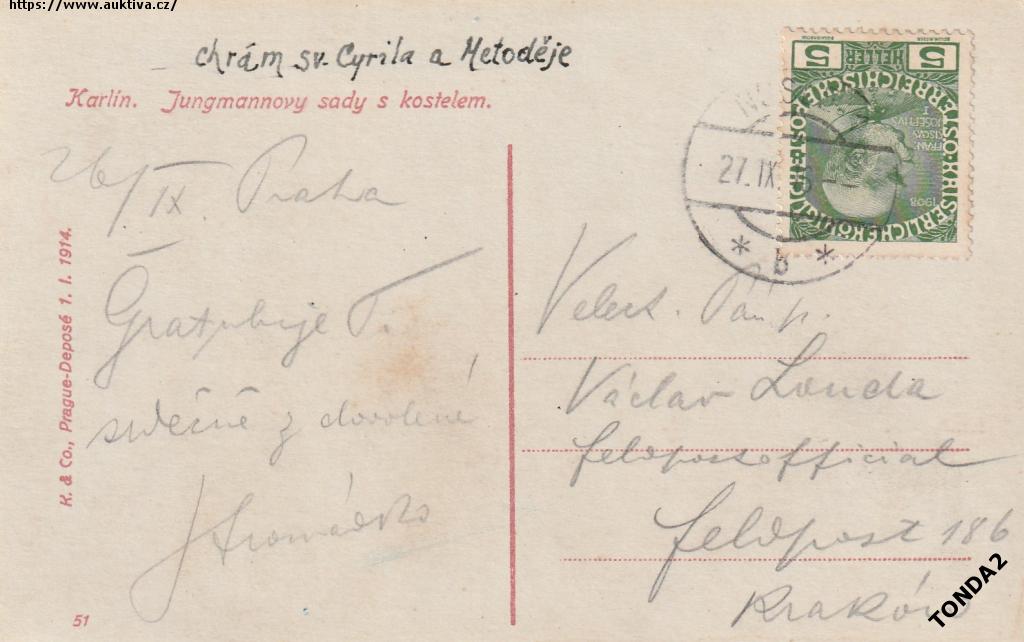 https://www.auktiva.cz/
chrám sv. Cyrila a Metoděje
Karlín. Jungmannovy sady s kostelem.
26/IX. Praha
Gratuluje Ti
srdečně z dovolené
K. & Co., Prague-Deposé 1. I. 1914.
51
5 HELLER 5
KAISERLICHE KÖNIGLICHE ÖSTERREICHISCHE
FRANCISCUS JOSEFUS I
1908
27. IX
* b *
Velect. Pan p.
Václav Londa
feldpostofficial
feldpost 186
Kraków
TONDA2